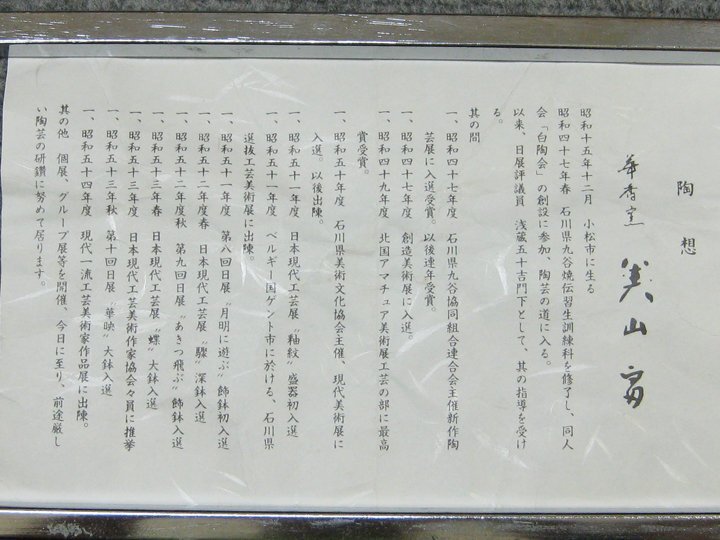 陶 想
華香窯 美山 富
昭和十五年十二月 小松市に生る
昭和四十七年春 石川県九谷焼伝習生訓練科を修了し、同人
会「白陶会」の創設に参加、陶芸の道に入る。
以来、日展評議員 浅蔵五十吉門下として、其の指導を受け
る。
其の間
一、昭和四十七年度 石川県九谷協同組合連合会主催新作陶
芸展に入選受賞。以後連年受賞。
一、昭和四十七年度 創造美術展に入選。
一、昭和四十九年度 北国アマチュア美術展工芸の部に最高
賞受賞。
一、昭和五十年度 石川県美術文化協会主催、現代美術展に
入選。以後出陳。
一、昭和五十一年度 日本現代工芸展〝釉紋〟盛器初入選
一、昭和五十一年度 ベルギー国ゲント市に於ける、石川県
選抜工芸美術展に出陳。
一、昭和五十一年度 第八回日展〝月明に遊ぶ〟飾鉢初入選
一、昭和五十二年度春 日本現代工芸展〝驟〟深鉢入選
一、昭和五十二年度秋 第九回日展〝あきつ飛ぶ〟飾鉢入選
一、昭和五十三年春 日本現代工芸展〝蝶〟大鉢入選
一、昭和五十三年度 日本現代工芸美術作家協会々員に推挙
一、昭和五十三年秋 第十回日展〝華映〟大鉢入選
一、昭和五十四年度 現代一流工芸美術家作品展に出陳。
其の他 個展、グループ展等を開催、今日に至り、前途厳し
い陶芸の研鑽に努めて居ります。